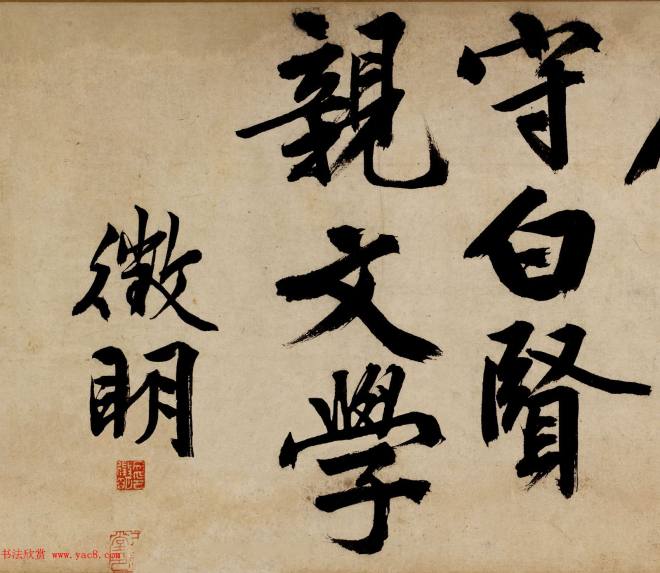 守白賢
親文學
徵明
书法欣赏 www.yac8.com